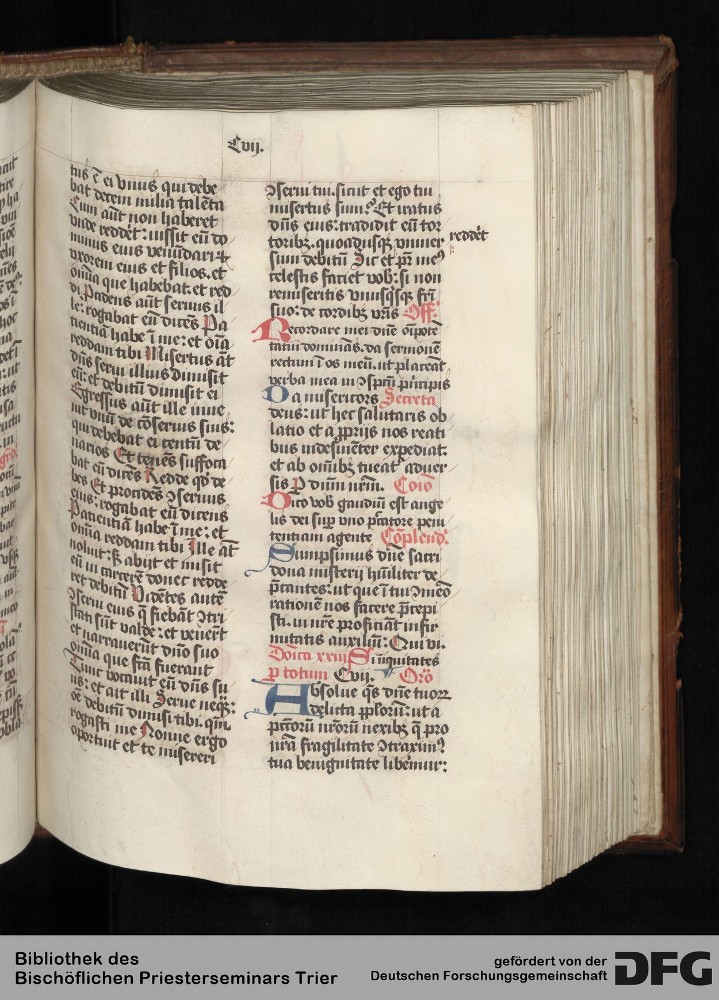 Cvij.
tus ē ei vnus qui debe
bat decem milia talēta
Cum aūt non haberet
vnde reddēt: iussit eū do
minus eius venūdari ⁊
vxorem eius et filios. et
om̄ia que habebat. et red
di Procidens aūt seruus il
le: rogabat eū dicēs Pa
tientiā habe ī me: et oīa
reddam tibi Misertus āt
dn̄s serui illius dimisit
eū: et debitū dimisit ei
Egressus aūt ille inue
nit vnū de cōseruis suis:
qui debebat ei centū de
narios Et tenens suffoca
bat eū dicēs Redde qd̄ de
bes Et procidēs ꝯseruus
eius: rogabat eū dicens
Patientiā habe ī me: et
om̄ia reddam tibi Ille āt
noluit: sꝫ abijt et misit
eū in carcerē donec redde
ret debitū Vidētes autē
ꝯserui eius q̄ fiebāt ꝯtri
stati sūt valde: et venēr̄t
et narrauerūt dn̄o suo
om̄ia que fcā fuerant
Tunc vocauit eū dn̄s su
us: et ait illi Serue neqꝫ:
oē debitū dimisi tibi. qm̄
rogasti me Nonne ergo
oportuit et te misereri
ꝯserui tui. sicut et ego tui
misertus sum? Et iratus
dn̄s eius: tradidit eū tor
toribꝫ. quoadusqꝫ vniuer
reddēt
sum debitū Sic et pr̄ me9
celestis faciet vob: si non
remiseritis vnusqsqꝫ fr̄i
suo: de cordibꝫ vr̄is Off.
Recordare mei dn̄e oīpotē
tatui dominās. da sermonē
rectum ī os meū. ut placeāt
verba mea in ꝯspc̄u pricipis
Da misericors Secreta
deus: ut hec salutaris ob
latio et a ꝓprijs nos reati
bus indesinēter expediat:
et ab om̄ibꝫ tueat aduer
sis P dn̄m nr̄m. Coīo
Dico vob gaudiū est ange
lis dei sup vno pccatore peni
tentiam agente Cōplend.
Sumpsimus dn̄e sacri
dona misterij hūiliter de
p̄cantes: ut que ī tui ꝯmēo
rationē nos facere p̄cepi
sti. in nr̄e proficiāt infir
mitatis auxiliū: Qui vi.
Dn̄ica xxiij Si iniquitates
p totum Cvij. Orō
Absolue q̄s dn̄e tuoꝝ
delicta pploꝝ: ut a
pctōrū nr̄orū nexibꝫ q̄ pro
nr̄a fragilitate ꝯtraxim9
tua benignitate libemur:
Bibliothek des
Bischöflichen Priesterseminars Trier
gefördert von der
Deutschen Forschungsgemeinschaft
DFG